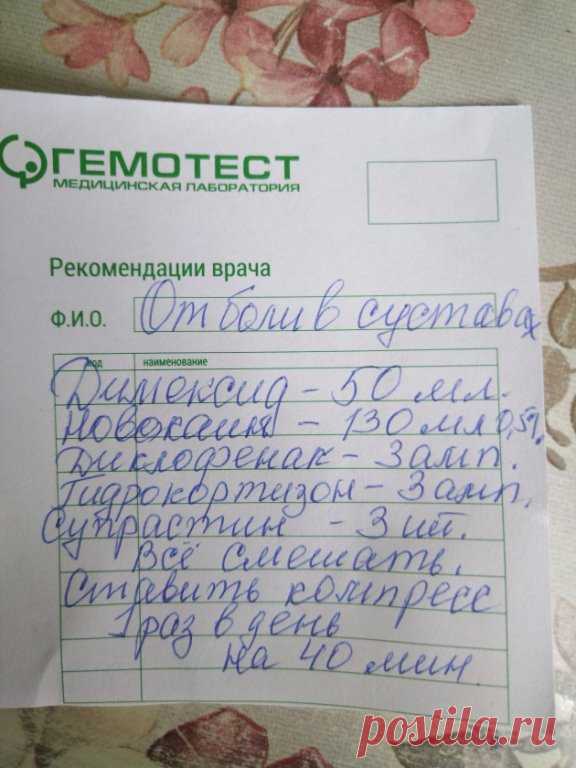 ГЕМОТЕСТ
МЕДИЦИНСКАЯ ЛАБОРАТОРИЯ
Рекомендации врача
Ф.И.О. От боли в суставах
код наименование
Димексид - 50 мл.
Новокаин - 130 мл 0,5%
Диклофенак - 3 амп.
Гидрокортизон - 3 амп.
Супрастин - 3 шт.
Всё смешать.
Ставить компресс
1 раз в день
на 40 мин.
postila.ru